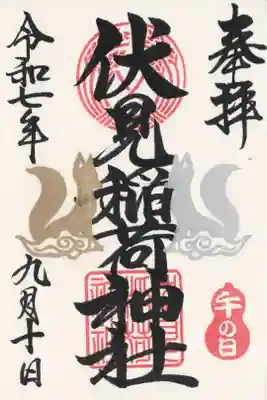 奉拝
伏見稲荷神社
午の日
令和七年
九月十日